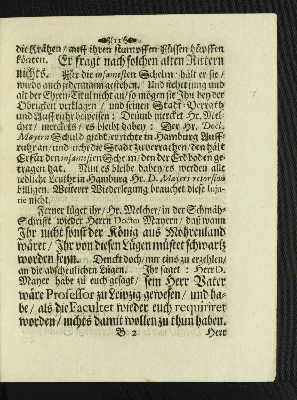 (11)
die Krähen / auff ihren stumpffen Füssen höpffen
können. Er fragt nach solchen alten Rittern
nichts. Für die infamesten Schelm hält er sie /
wirds auch jedermann gestehen. Und ziehet jung und
alt der Ehren-Titul nicht an / so mögen sie Ihn bey der
Obrigkeit verklagen / und seiner Stadt-Verrath
und Auffruhr beweisen: Drumb mercket Hr. Mel-
cher / merckts / es bleibt dabey: Der Hr. Doct.
Mayern Schuld giebt, er richte in Hamburg Auff-
ruhr an / und suche die Stadt zu verrathen / den hält
Er für den infamesten Schelm / den der Erdboden ge-
tragen hat. Nun es bleibe dabey / es werden alle
redliche Leuthe in Hamburg Hr. D. Mayers retorsion
billigen. Weiterer Wiederlegung brauchet diese Inju-
rie nicht.
Ferner lüget ihr / Hr. Melcher / in der Schmäh-
Schrifft wieder Herrn Doctor Mayern / daß wann
Ihr nicht sonst der König aus Mohrenland
wäret / Ihr von diesen Lügen müstet schwartz
worden seyn. Denckt doch / nur eins zu erzehlen /
an die abscheulichen Lügen. Ihr saget: Herr D.
Mayer habe zu euch gesagt / sein Herr Vater
wäre Professor zu Leipzig gewesen / und ha-
be / als die Facultet wieder euch requiriret
worden / nichts damit wollen zu thun haben.
B 2 Herr